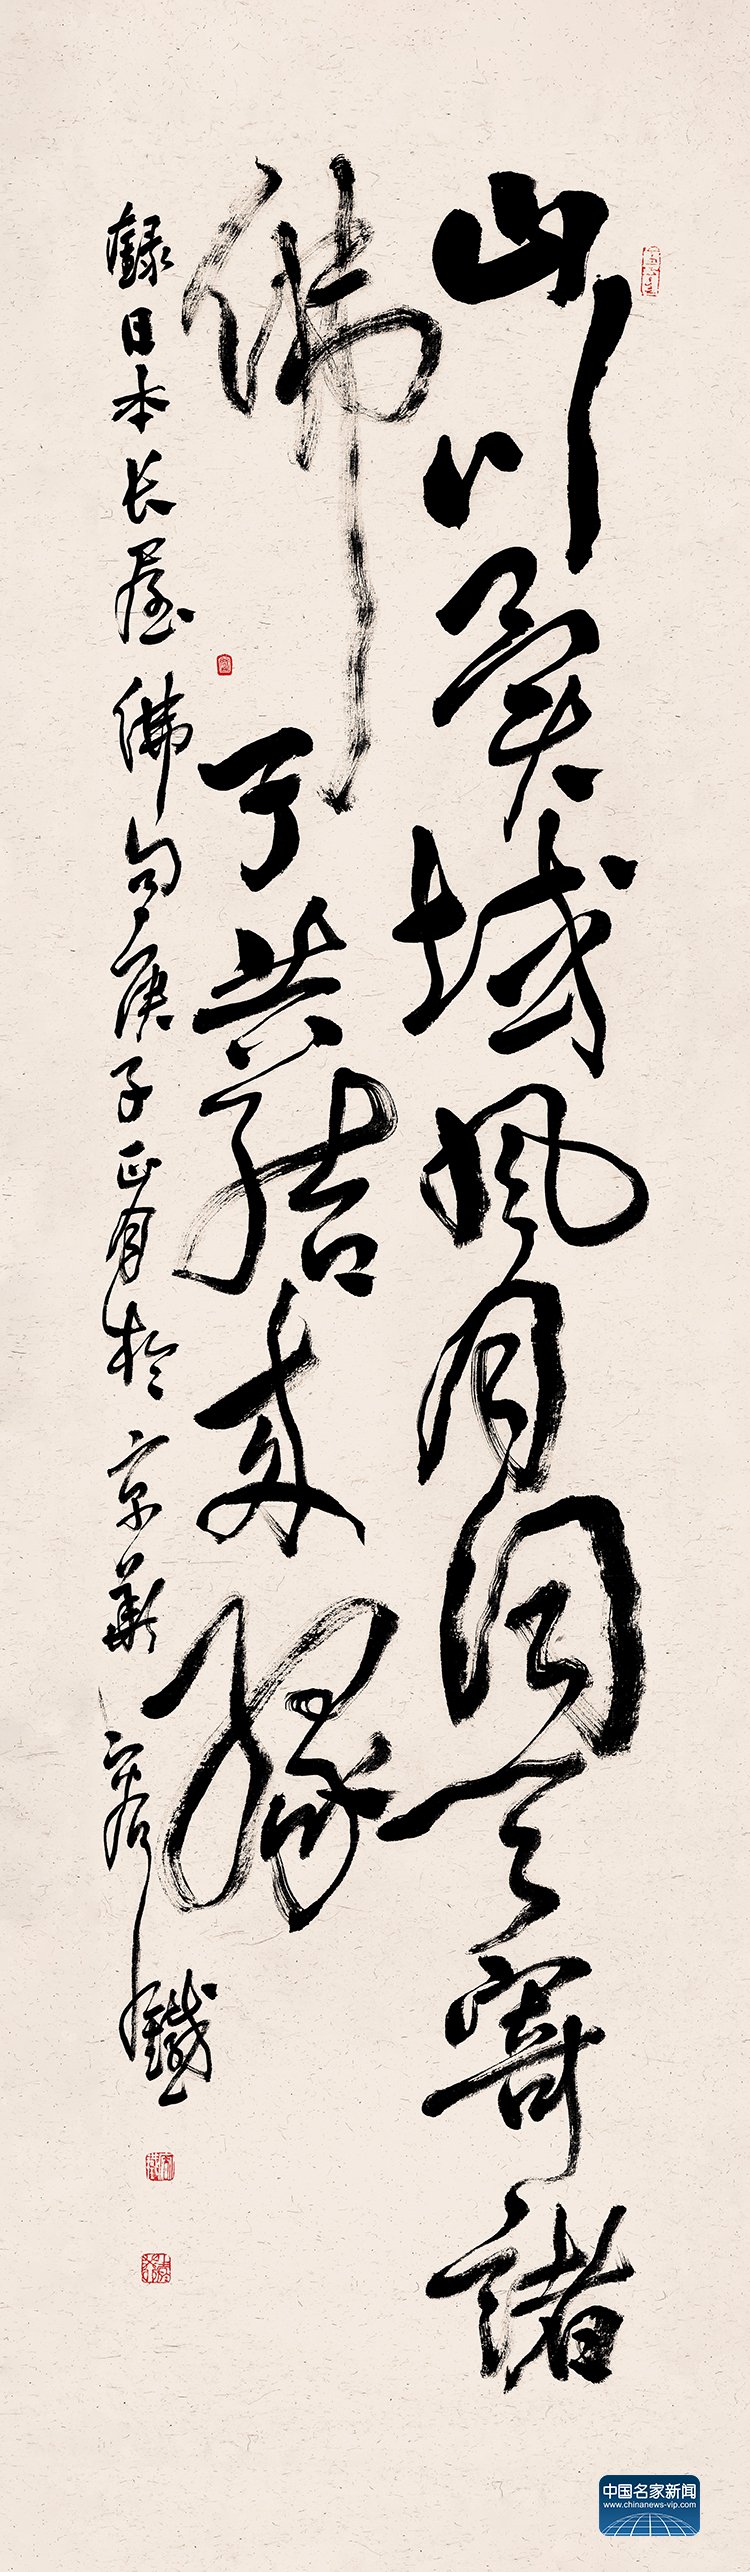 山川異域風月同天寄諸
佛子共結来緣
錄日本长屋佛句庚子正月於京華容鐵
中国名家新闻
www.chinanews-vip.com